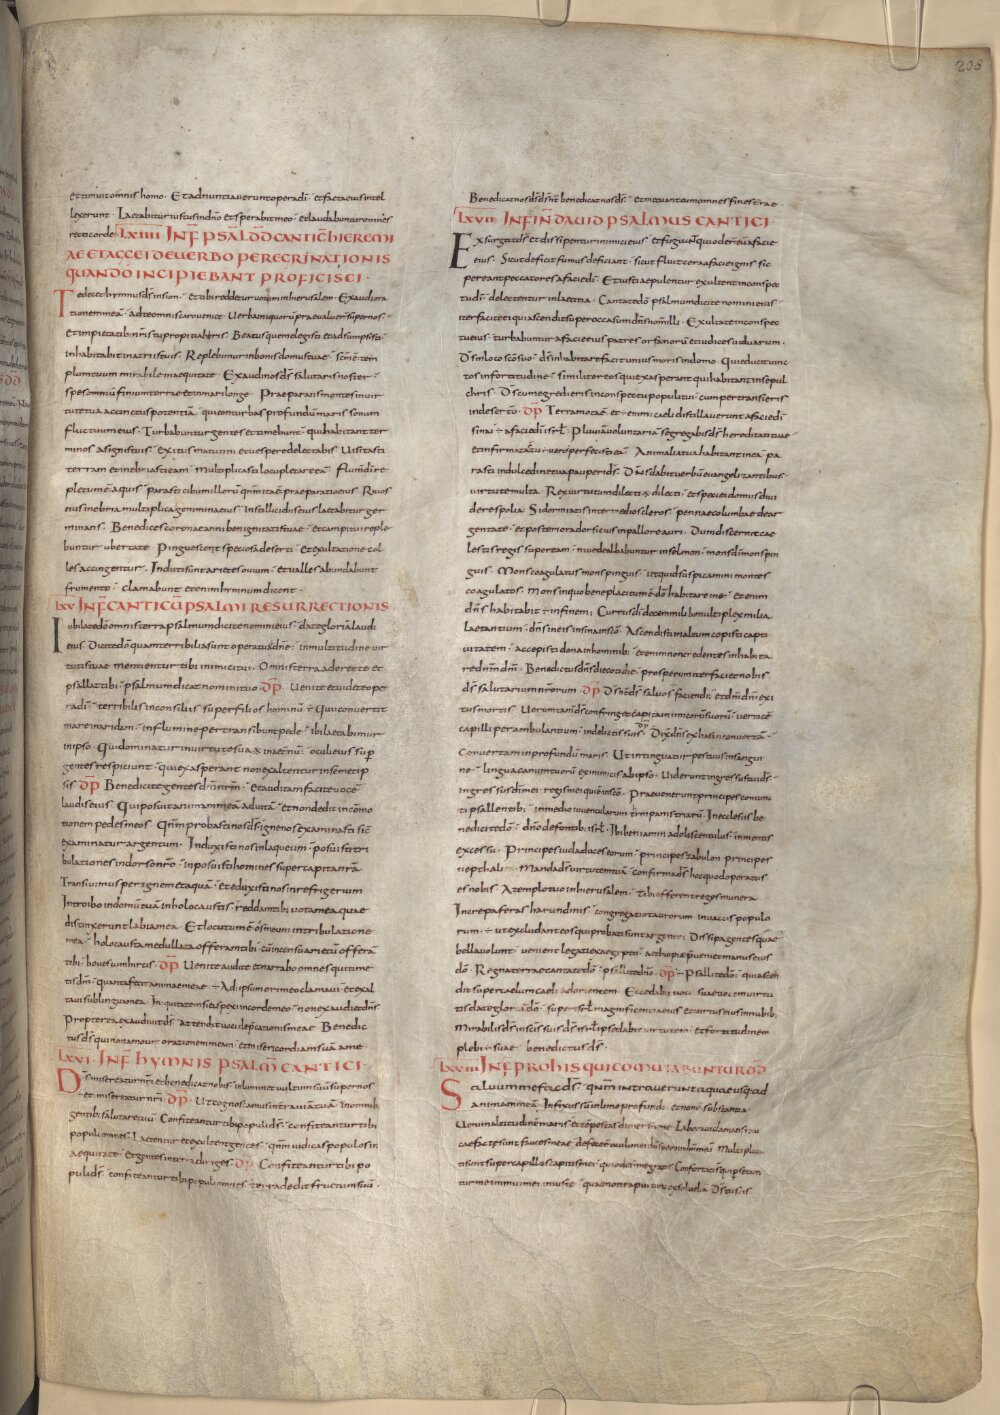 208
et timuit omnis homo · Et adnuntiauerunt opera dī · et facta eius intel
lexerunt · Laetabitur iustus in dño et sperabit in eo · et laudabuntur omnes
recti corde · LXIIII INF̄ PSAL̄ DD̄ CANTIC̄ HIEREMI
AE ET AGGEI DE VERBO PEREGRINATIONIS
QUANDO INCIPIEBANT PROFICISCI ·
Te decet hymnus ds̄ in sion · et tibi reddetur uotum in hierusalem · Exaudi ora
tionem meā · ad te omnis caro ueniet · Uerba iniquorū praeualuer̄ super nos ·
et impietatib· nr̄is tu propitiaberis · Beatus quem elegisti et adsumpsisti ·
inhabitabit in atriis tuis · Replebimur in bonis domus tuae · sc̄m ē tem
plum tuum mirabile in aequitate · Exaudi nos ds̄ salutaris noster ·
spes omniū finium terrae et in mari longe · Praeparans montes in uir
tute tua accinctus potentiā · qui conturbas profundū maris sonum
fluctuum eius · Turbabuntur gentes et timebunt · qui habitant ter
minos a signis tuis · exitus matutini et uespere delectabis Uisitasti
terram et inebriasti eam · multiplicasti locupletare eā · Flumen dī re
pletum ē aquis · parasti cibum illorū qm̄ ita ē praeparatio eius Riuos
eius inebria multiplica genimina eius · In stillicidiis eius laetabitur ger
minans · Benedices coronae anni benignitatis tuae · et campi tui reple
buntur ubertate Pinguescent speciosa deserti · et exultatione col
les accingentur · Induti sunt arietes ouium · et ualles abundabunt
frumento · clamabunt etenim hymnum dicent ·
LXV · INF̄ CANTICŪ PSALMI RESURRECTIONIS
Iubilate dō omnis terra psalmum dicite nomini eius · date gloriā laudi
eius Dicite dō quam terribilia sunt opera tua dñe · in multitudine uir
tutis tuae mentientur tibi inimici tui · Omnis terra adoret te et
psallat tibi · psalmum dicat nomini tuo DP̄ Uenite et uidete ope
ra dī · terribilis in consiliis super filios hominū ÷ Qui conuertit
mare in aridam · in flumine pertransibunt pede · ibi laetabimur
in ipso · Qui dominatur in uirtute sua in aeternū · oculi eius sup̄
gentes respiciunt · qui exasperant non exaltentur in semetip
sis DP̄ Benedicite gentes dn̄m nr̄m · et auditam facite uocē
laudis eius Qui posuit animam meā ad uitā · et non dedit in cōmo
tionem pedes meos Qm̄ probasti nos ds̄ · igne nos examinasti sic̄
examinatur argentum · Induxisti nos in laqueum · posuisti tri
bulationes in dorso nr̄o · inposuisti homines super capita nr̄a
Transiuimus per ignem et aquā · et eduxisti nos in refrigerium
Introibo in domū tuā in holocaustis · reddam tibi uota mea quae
distinxerunt labia mea Et locutum ē os meum in tribulatione
mea · holocausta medullata offeram tibi · cū incensu arietū offerā
tibi · boues cum hircis · DP̄ Uenite audite et narrabo omnes qui time
tis dm̄ · quanta fecit animae meae ÷ Ad ipsum ore meo clamaui · et exal
taui sub lingua mea · Iniquitatem si conspexi in corde meo · non exaudiet dn̄s
Propterea exaudiuit ds̄ · attendit uoci deprecationis meae Benedic
tus ds̄ qui non amouit orationem meam · et misericordiam suā a me ·
LXVI · INF̄ HYMNIS PSALM̄ CANTICI ·
Ds̄ misereatur nr̄i et benedicat nobis · inluminet uultum suū super nos
÷ et misereatur nr̄i · DP̄ · Ut cognoscamus in terra uiā tuā · in omnib·
gentib· salutare tuū Confiteantur tibi populi ds̄ · confiteantur tibi
populi omnes · Laetentur et exultent gentes · qm̄ iudicas populos in
aequitate · et gentes in terra diriges · DP̄ · Confiteantur tibi po
puli ds̄ · confiteantur tibi populi omnes · terra dedit fructum suū ·
Benedicat nos ds̄ ds̄ nr̄ benedicat nos ds̄ · et metuant eum omnes fines terrae
LXVII · INFIN̄ DAVID PSALMUS CANTICI
Exsurgat ds̄ et dissipentur inimici eius et fugiant qui oderunt eū a facie
eius · Sicut deficit fumus deficiant · sicut fluit cera a facie ignis sic
pereant peccatores a facie dī · Et iusti aepulentur exultent in conspec
tu dī · delectentur in laetitia · Cantate dō psalmum dicite nomini eius
iter facite ei qui ascendit super occasum dn̄s nom̄ illi · Exultate in conspec
tu eius turbabuntur a facie eius patres orfanorū et iudices uiduarum ·
Ds̄ in loco sc̄o suo · ds̄ inhabitare facit unius moris in domo Qui educit uinc
tos in fortitudine · similiter eos qui exasperant qui habitant in sepul
chris · Ds̄ cum egredieris in conspectu populi tui · cum pertransieris
in deserto · DP̄ Terra mota ē et ÷ enim caeli distillauerunt a facie dī
sinai ÷ a facie dī isrł Pluuiā uoluntariā segregabis ds̄ hereditati tuae ·
et infirmata ē tu uero perfecisti eā · Animalia tua habitant in ea · pa
rasti in dulcedine tua pauperi ds̄ · Dn̄s dabit uerbū euangelizantibus ·
uirtute multa Rex uirtutum dilecti dilecti · et speciei domus diui
dere spolia Si dormiatis inter medios cleros · pennae columbae dear
gentate · et posteriora dorsi eius in pallore auri · Dum discernit cae
lestis regis super eam · niue dealbabuntur in selmon · mons dī mons pin
guis · Mons coagulatus mons pinguis · ut quid suspicamini montes
coagulatos Mons in quo beneplacitum ē dō habitare in eo · etenim
dn̄s habitabit ÷ in finem : Currus dī decem milib· multiplex milia
laetantium · dn̄s in eis in sina in sc̄o · Ascendisti in altum cepisti capti
uitatem · accepisti dona in hominib· · etenim non credentes inhabita
re dn̄m dm̄ · Benedictus dn̄s die cotidie · prosperum iter faciet nobis
ds̄ salutarium nr̄orum · DP̄ Ds̄ nr̄ ds̄ saluos faciendi · et dn̄i dn̄i exi
tus mortis Uerumtam̄ ds̄ confringet capita inimicorū suorū · uerticē
capilli perambulantium · in delictis suis · DP̄ Dix̄ dn̄s ex basan conuertā ·
conuertam in profundū maris Ut intinguatur pes tuus in sangui
ne · lingua canum tuorū ex inimicis ab ipso · Uiderunt ingressus tui ds̄ ·
ingressus dī mei · regis mei qui ē in sc̄o · Praeuenerunt principes coniunc
ti psallentib· in medio iuuencularum tympanistriarū · In ecclesiis be
nedicite dō · dn̄o de fontib· isrł · Ibi beniamin adolescentulus · in mentis
excessu · Principes iuda duces eorum · principes zabulon principes
nepthali Manda ds̄ uirtuti tuae · confirma ds̄ hoc quod operatus
es nobis A templo tuo in hierusalem · tibi offerent reges munera
Increpa feras harundinis · congregatio taurorum in uaccis populo
rum · ÷ ut excludant eos qui probati sunt argento · Dissipa gentes quae
bella uolunt · uenient legati ex aegypto · aethiopia praeueniet manus eius
dō · Regna terrae cantate dō · psallite dn̄o · DP̄ ÷ Psallite dō · qui ascen
dit super caelum caeli ad orientem · Ecce dabit uoci suae uocem uirtu
tis date gloriā dō · super isrł magnificentia eius et uirtus eius in nubib·
Mirabilis ds̄ in sc̄is suis ds̄ isrł ipse dabit uirtutem · et fortitudinem
plebi ÷ suae · benedictus ds̄ ·
LXVIII INF̄ PRO HIS QUI COMUTABUNTUR DD̄
Saluum me fac ds̄ · qm̄ intrauerunt aquae usq· ad
animam meā Infixus sū in limo profundi · et non ē substantia ·
Ueni in altitudinē maris · et tempestas dimersit me · Laboraui clamans rau
cae factae sunt fauces meae · defecer̄ oculi mei dū spero in dm̄ meū Multiplica
ti sunt super capillos capitis mei · qui oder̄ me gratis · Confortati st̄ qui persecun
tur me inimici mei iniuste · quae non rapui tunc exsoluebā Ds̄ tu scis